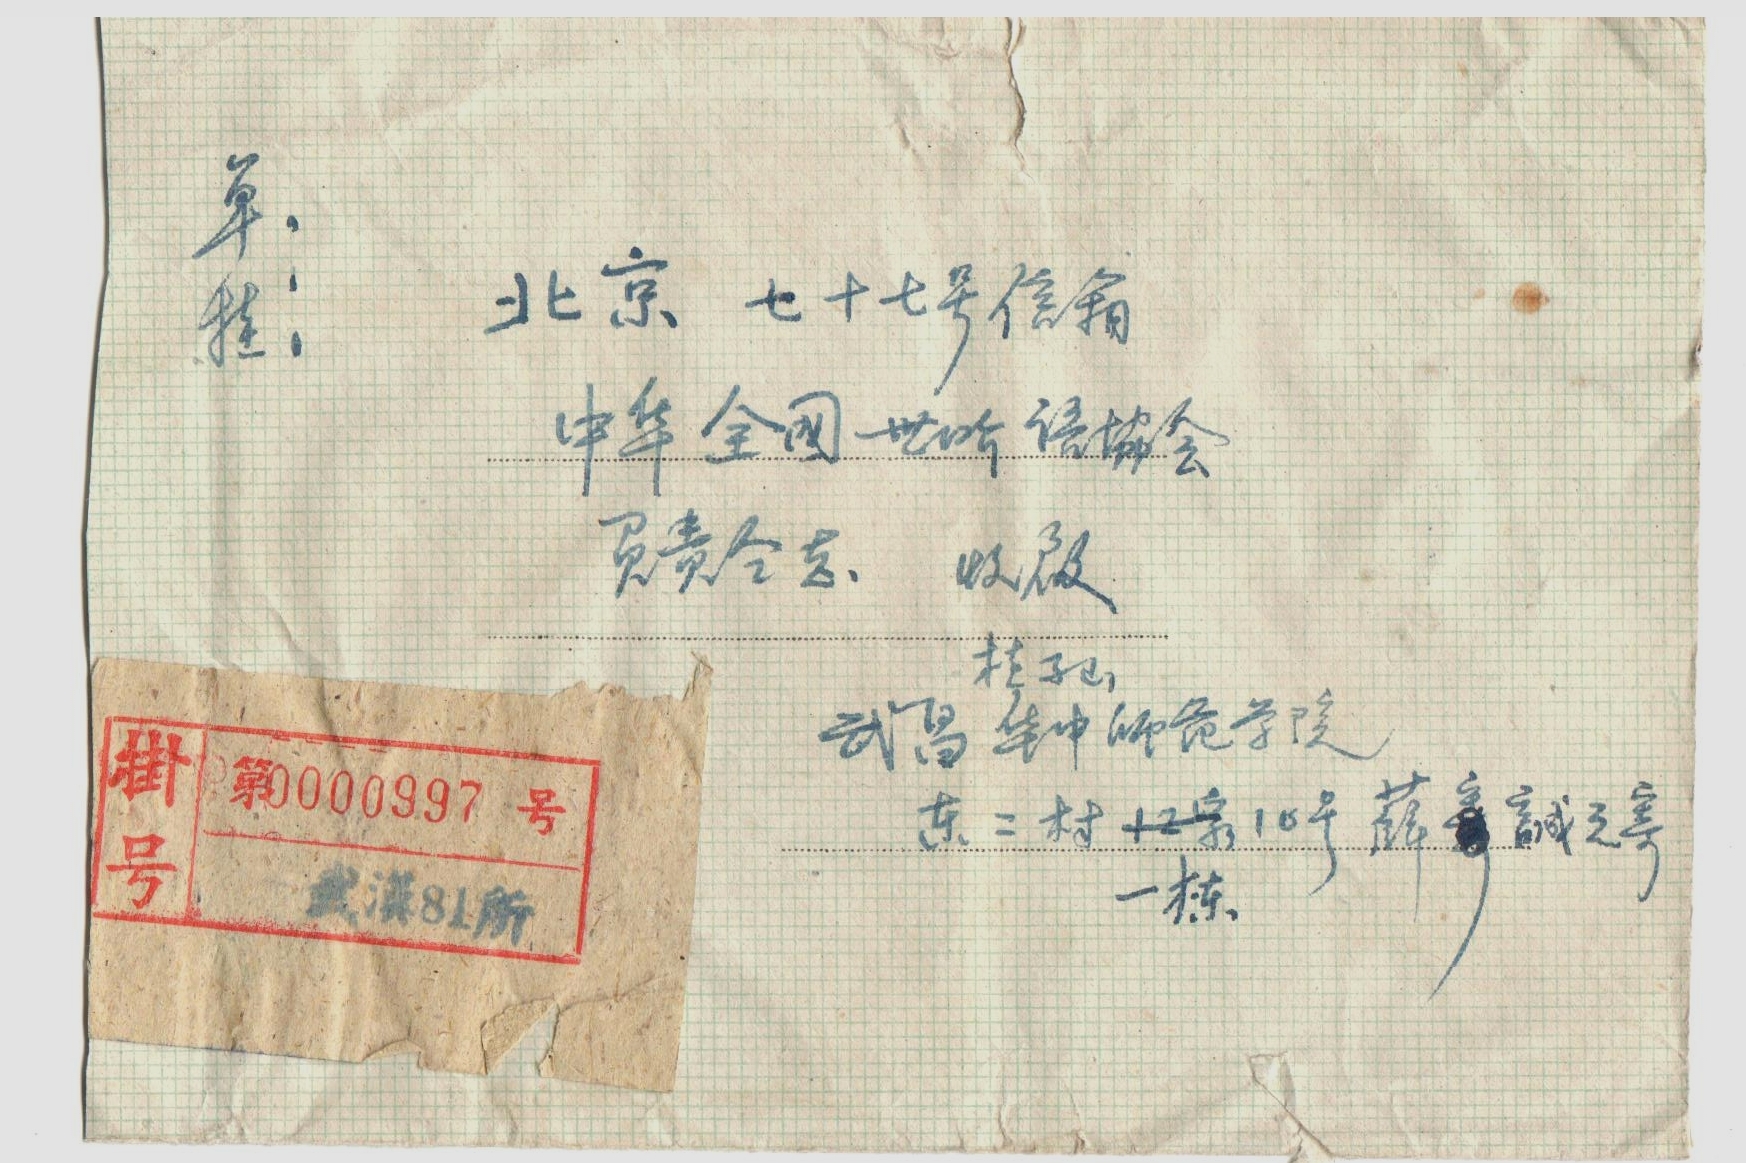 单挂
北京 七十七号信箱
中华全国世界语协会
负责仝志 收启
桂子山
武昌华中师范学院
东二村12家10号薛诚之寄
一栋
掛号
第0000997号
武漢81所